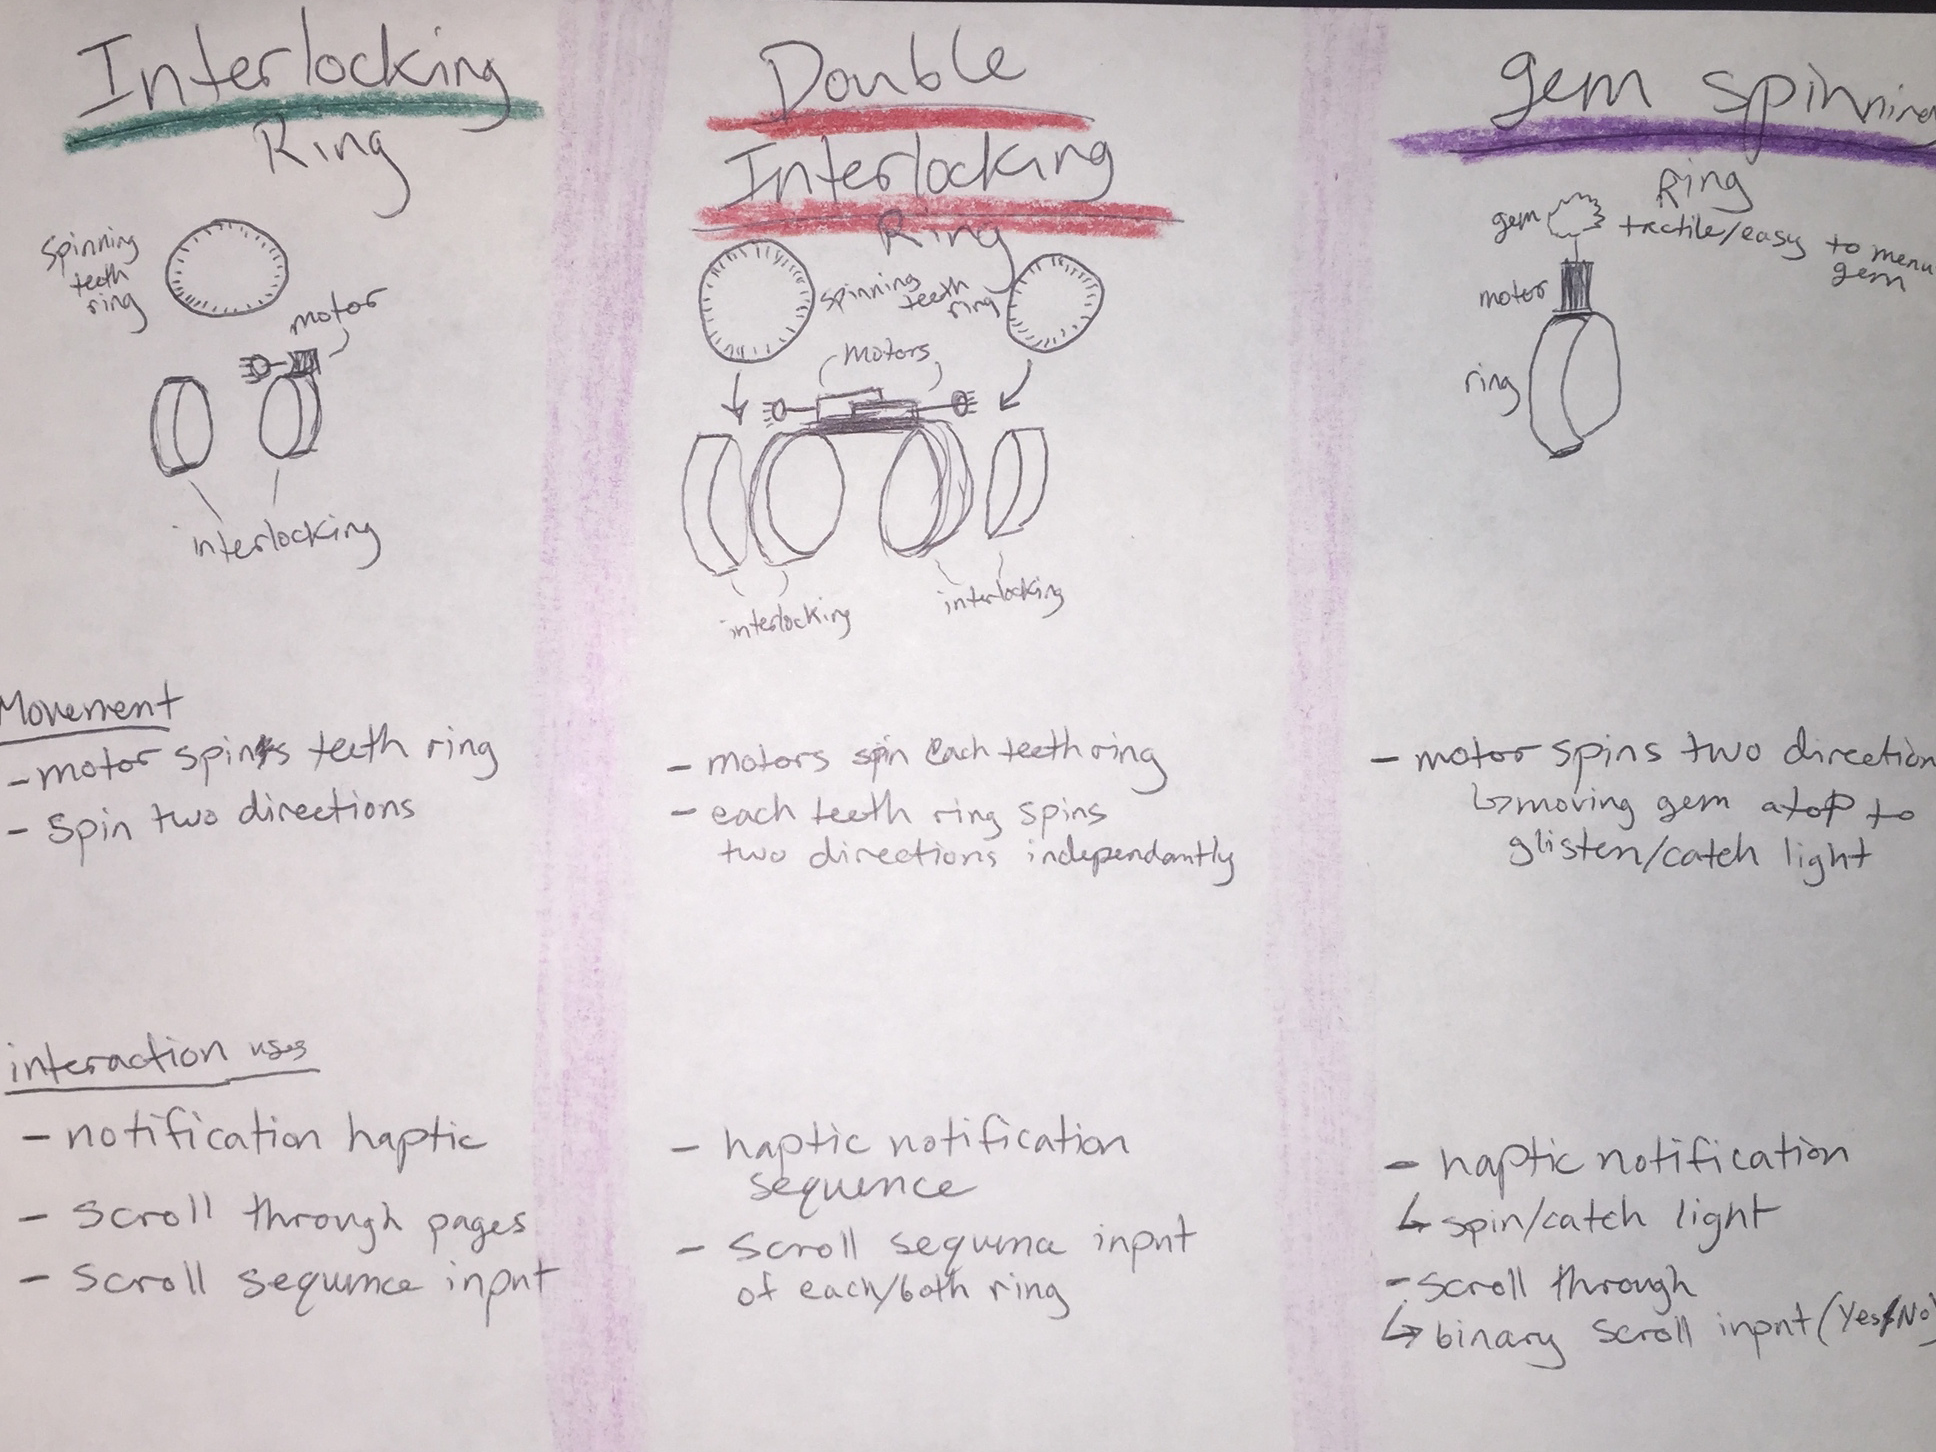 Interlocking
Ring
Spinning
teeth
ring
motor
interlocking
Movement
- motor spins teeth ring
- Spin two directions
interaction uses
- notification haptic
- Scroll through pages
- Scroll sequence input
Double
Interlocking
Ring
spinning
teeth
ring
motors
interlocking
interlocking
- motors spin each teeth ring
- each teeth ring spins
two directions independantly
- haptic notification
sequence
- Scroll sequence input
of each/both ring
gem spinning
Ring
gem
tactile/easy to menu
gem
motor
ring
- motor spins two direction
↳ moving gem atop to
glisten/catch light
- haptic notification
↳ spin/catch light
- Scroll through
↳ binary scroll input (Yes/No)